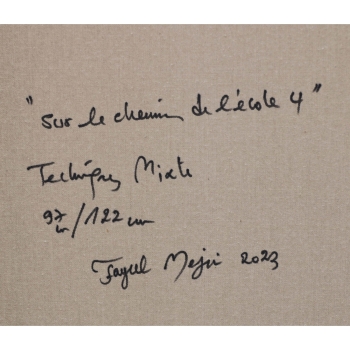 "Sur le chemin de l'école 4"
Techniques Mixte
97/122 cm
Fayçel Mejri 2023